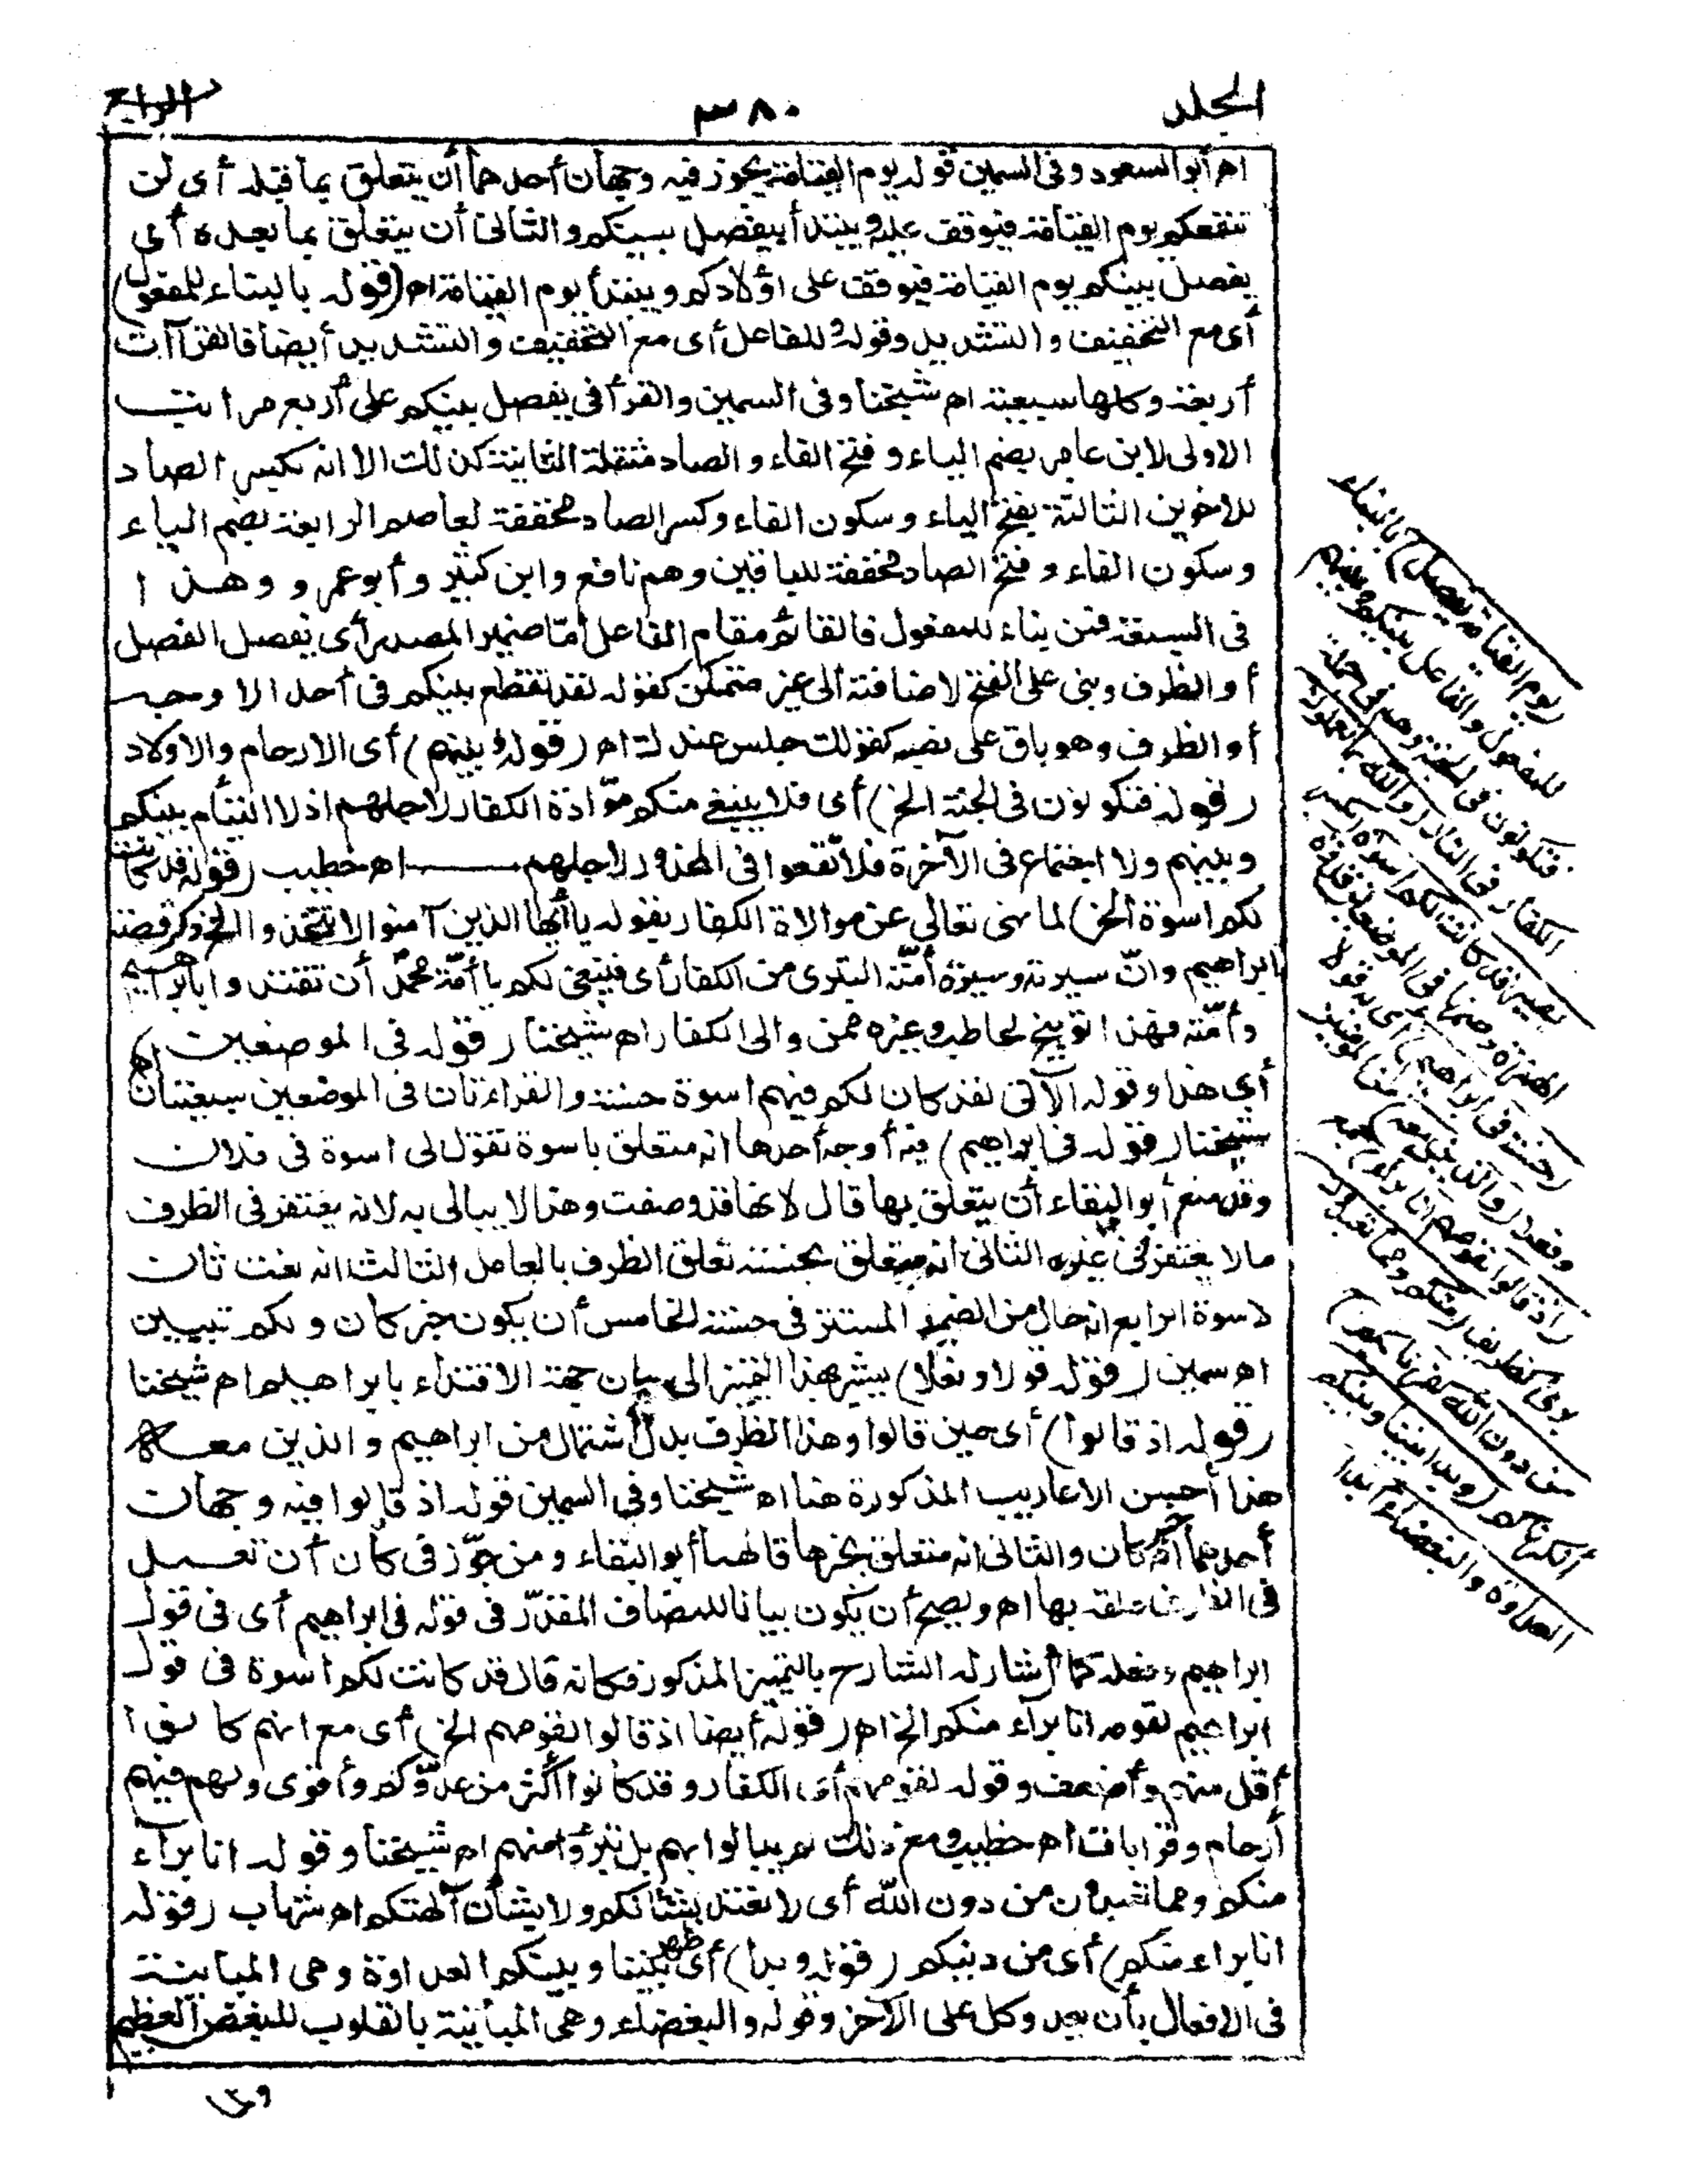 المجلد ٣٨٠ الرابع
اه أبو السعود وفى السمين قوله يوم القيامة يجوز فيه وجهان أحدهما أن يتعلق بما قبله أى لن
تنفعكم يوم القيامة فيوقف عليه ويبتدأ بيفصل بينكم والثانى أن يتعلق بما بعده أى
يفصل بينكم يوم القيامة فيوقف على أولادكم ويبتدأ يوم القيامة اه (قوله بالبناء للمفعول)
أى مع التخفيف والتشديد وقوله وللفاعل أى مع التخفيف والتشديد أيضا فالقرآآت
أربعة وكلها سبعية اه شيخنا وفى السمين والقرأ فى يفصل بينكم على أربع مراتب
الاولى لابن عامر بضم الياء وفتح الفاء والصاد مثقلة الثانية كذلك الا انه بكسر الصاد
للاخوين الثالثة بفتح الياء وسكون الفاء وكسر الصاد مخففة لعاصم الرابعة بضم الياء
وسكون الفاء وفتح الصاد مخففة للباقين وهم نافع وابن كثير وأبو عمرو وهذا
فى السبعة فمن بناه للمفعول فالقائم مقام الفاعل اما ضمير المصدر أى يفصل الفصل
أو الظرف وبنى على الفتح لاضافته الى غير متمكن كقوله لقد تقطع بينكم فى أحد الاوجه
أو الظرف وهو باق على نصبه كقولك جلس عندك اه (قوله وبينهم) أى الارحام والاولاد
(قوله فتكونون فى الجنة الخ) أى فلا ينبغى منكم موّادة الكفار لاجلهم اذ لا التيام بينكم
وبينهم ولا اجتماع فى الآخرة فلا تقعوا فى المحذور لاجلهم اه خطيب (قوله قد كانت
لكم اسوة الخ) لما نهى تعالى عن موالاة الكفار بقوله يا أيها الذين آمنوا لا تتخذوا الخ ذكر قصة
ابراهيم وانّ سيرته وسيرة أمّته التبرى من الكفار أى فينبغى لكم يا أمّة محمد أن تقتدوا بابراهيم
وأمّته فهذا توبيخ لحاطب وغيره ممن والى الكفار اه شيخنا (قوله فى الموضعين)
أى هذا وقوله الآتى لقد كان لكم فيهم اسوة حسنة والقراءتان فى الموضعين سبعيتان اه
شيخنا (قوله فى ابراهيم) فيه أوجه أحدها انه متعلق باسوة تقول لى اسوة فى فلان
وقد منع أبو البقاء أن يتعلق بها قال لانها قد وصفت وهذا لا يبالى به لانه يغتفر فى الظرف
ما لا يغتفر فى غيره الثانى انه متعلق بحسنة تعلق الظرف بالعامل الثالث انه نعت ثان
لاسوة الرابع انه حال من الضمير المستتر فى حسنة الخامس أن يكون خبر كان ولكم تبيين
اه سمين (قوله قولا وفعلا) يشير بهذا التمييز الى بيان جهة الاقتداء بابراهيم اه شيخنا
(قوله اذ قالوا) أى حين قالوا وهذا الظرف بدل اشتمال من ابراهيم والذين معه
هذا أحسن الاعاريب المذكورة هنا اه شيخنا وفى السمين قوله اذ قالوا فيه وجهان
أحدهما انه خبر كان والثانى انه متعلق بخبرها قالهما أبو البقاء ومن جوّز فى كان أن تعمل
فى الظرف علقه بها اه ويصح أن يكون بيانا للمضاف المقدّر فى قوله فى ابراهيم أى فى قول
ابراهيم وفعله كما أشار له الشارح بالتمييز المذكور فكانه قال قد كانت لكم اسوة فى قول
ابراهيم لقومه انا برآء منكم الخ اه (قوله أيضا اذ قالوا لقومهم الخ) أى مع انهم كانوا
أقل منهم وأضعف وقوله لقومهم أى الكفار وقد كانوا أكثر من عدوّكم وأقوى ولهم فيهم
أرحام وقرابات اه خطيب ومع ذلك لم يبالوا بهم بل تبرؤا منهم اه شيخنا وقوله انا برآء
منكم ومما تعبدون من دون الله أى لا نعتد بشأنكم ولا بشأن آلهتكم اه شهاب (قوله
انا برآء منكم) أى من دينكم (قوله وبدا) أى ظهر بيننا وبينكم العداوة وهى المباينة
فى الافعال بأن يعدو كل على الآخر وقوله والبغضاء وهى المباينة بالقلوب للبغض العظيم
(يوم القيامة يفصل) بالبناء
للمفعول والفاعل (بينكم) وبينهم
فتكونون فى الجنة وهم فى جملة
الكفار فى النار (والله بما تعملون
بصير قد كانت لكم اسوة) بكسر
الهمزة وضمها فى الموضعين قدوة
(حسنة فى ابراهيم) أى به قولا
وفعلا (والذين معه) من المؤمنين
(اذ قالوا لقومهم انا برآء) جمع
برىء كظريف (منكم ومما تعبدون
من دون الله كفرنا بكم)
أنكرناكم (وبدا بيننا وبينكم
العداوة والبغضاء أبدا